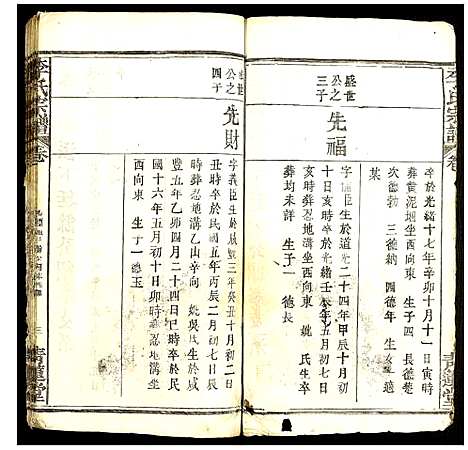 李氏宗譜 卷
青蓮堂
卒於光緒十七年辛卯十月十一日
葬黃泥塅坐西向東 生子四 長德
次德勃 三德納 四德年 生女
某
盛世
公之
三子
先福
字 臣生於道光二十四年甲辰十月
十日亥時卒於光緒壬辰年五月初七日
亥時葬忍地溝坐西向東 姚氏生
葬均未詳 生子一 德長
盛世
公之
四子
先財
字義臣生於咸豐三年癸丑十月初二日
丑時卒於民國五年丙辰二月初七日辰
時葬忍地溝乙山辛向 姚吳氏生於咸
豐五年乙卯四月二十四日巳時卒於民
國十六年五月初十日卯時葬忍地溝坐
西向東 生子一德玉
李氏宗譜 卷
三
青蓮堂